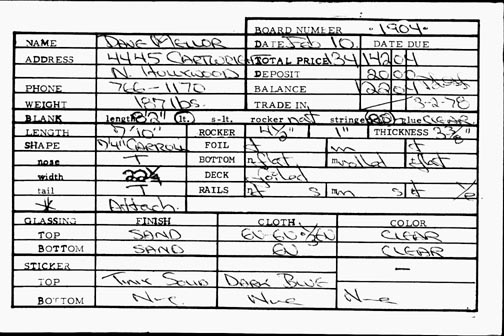 BOARD NUMBER -1904-
NAME DAVE MELLOR DATE Feb 10. DATE DUE
ADDRESS 4445 CARTWRIGHT TOTAL PRICE 134 14204
N. HOLLYWOOD DEPOSIT 2000
PHONE 766-1170 BALANCE 12204
WEIGHT 187 lbs. TRADE IN 3-2-78
BLANK length 8'2" lt. s-lt. rocker nat stringer blue CLEAR
LENGTH 7'10" ROCKER 4 1/2" 1" THICKNESS 3 3/8"
SHAPE CARROLL FOIL f m f
nose T BOTTOM flat rolled flat
width 22 1/4 DECK foiled
tail T RAILS f s m s f
Attach.
GLASSING FINISH CLOTH. COLOR
TOP SAND CLEAR
BOTTOM SAND CLEAR
STICKER —
TOP SOLID DARK BLUE
BOTTOM